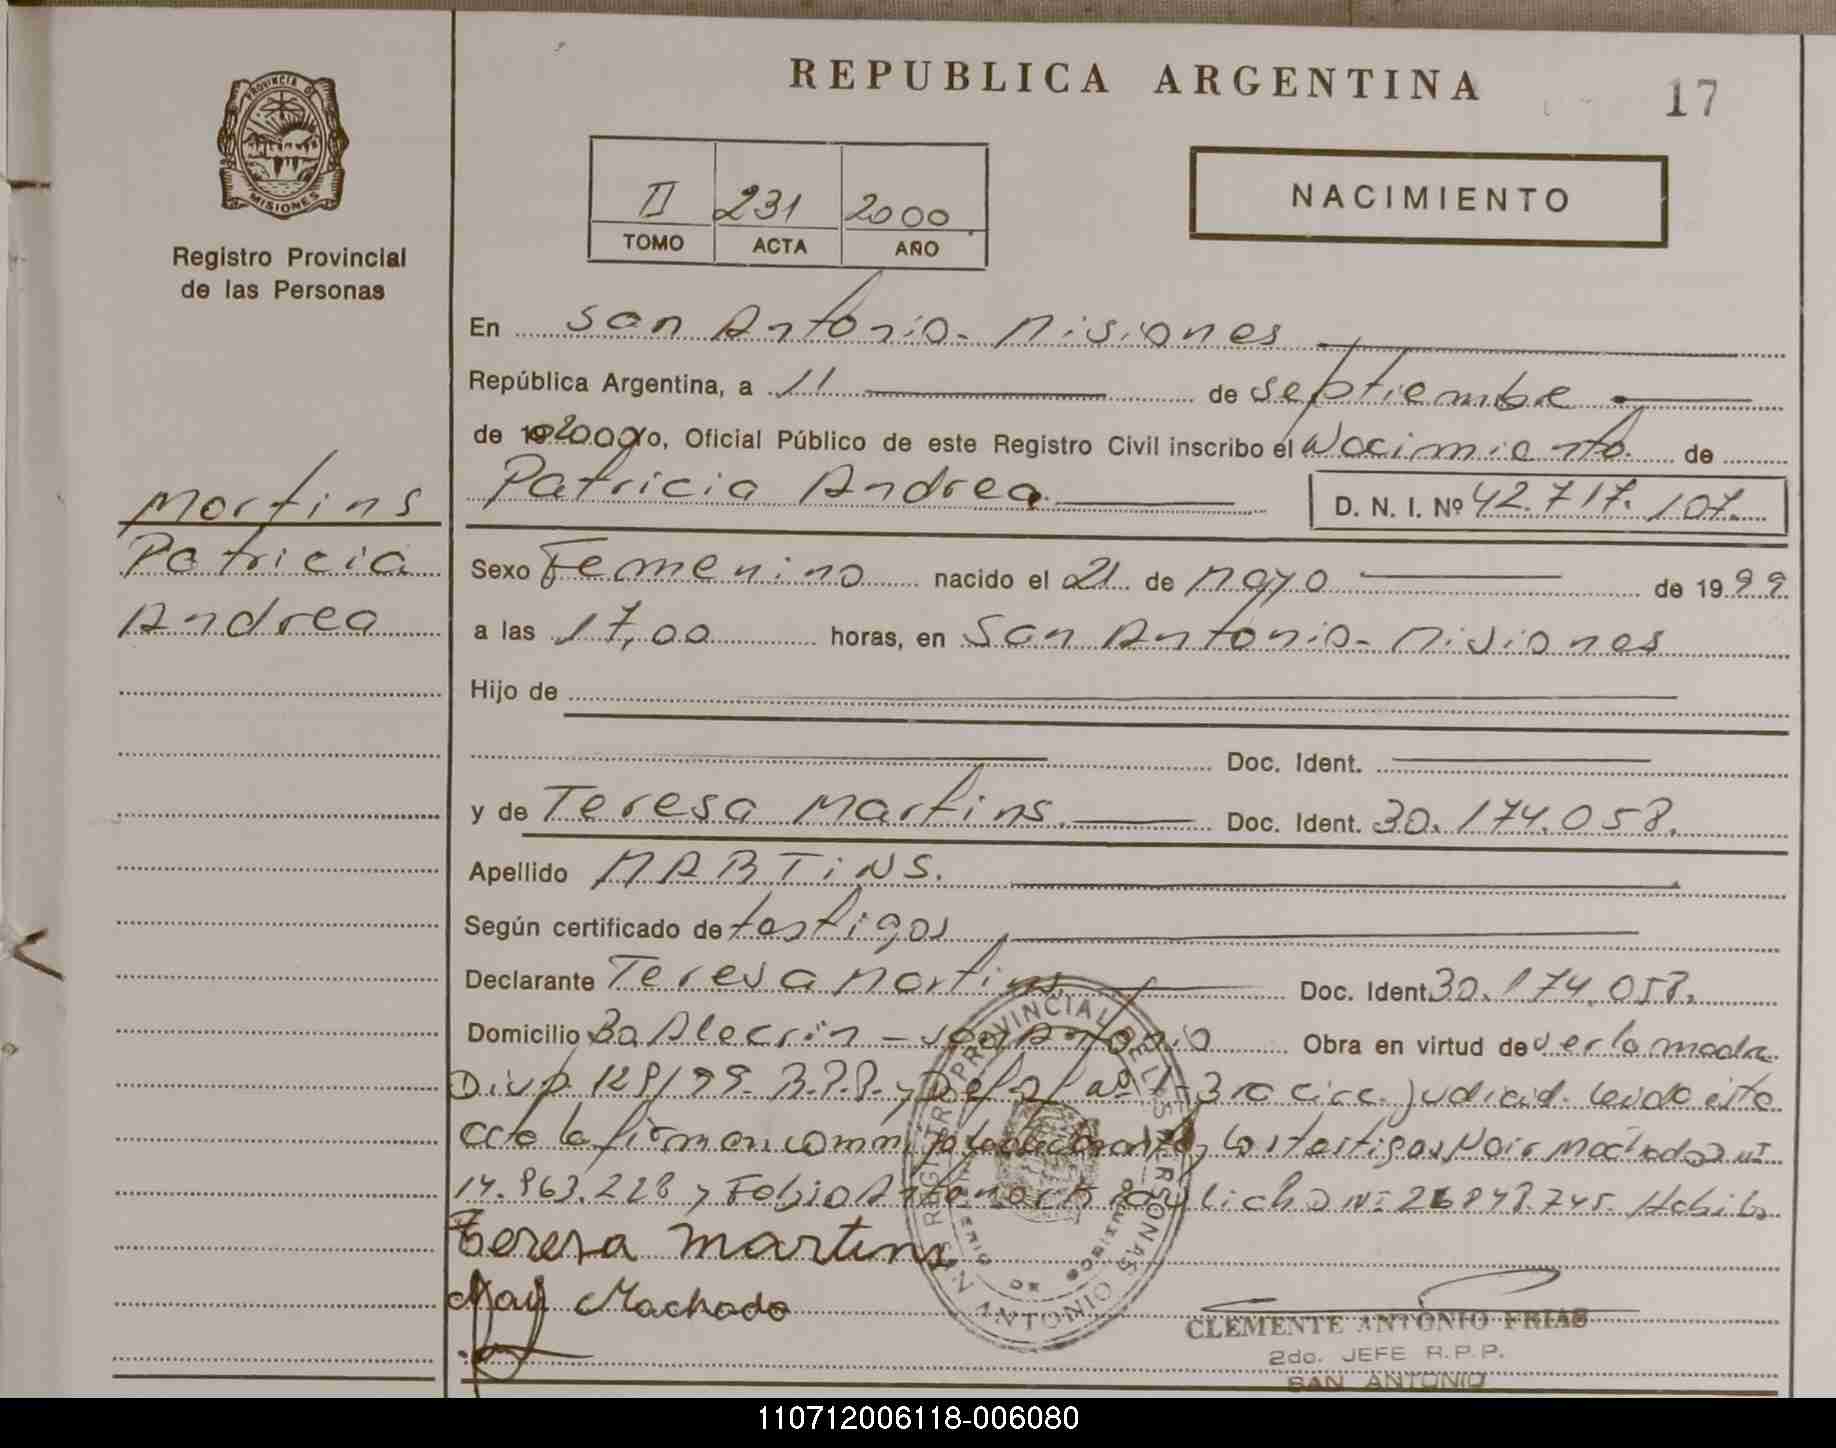 REPUBLICA ARGENTINA
17
PROVINCIA DE
MISIONES
Registro Provincial
de las Personas
II 231 2000
TOMO ACTA AÑO
NACIMIENTO
En San Antonio - Misiones
República Argentina, a 11 de septiembre
de 2000 yo, Oficial Público de este Registro Civil inscribo el Nacimiento de
Patricia Andrea. D. N. I. Nº 42.717.107.
Martins
Patricia
Andrea
Sexo Femenino nacido el 21 de Mayo de 1999
a las 17,00 horas, en San Antonio - Misiones
Hijo de
Doc. Ident.
y de Teresa Martins. Doc. Ident. 30.174.058.
Apellido MARTiNS.
Según certificado de testigos
Declarante Teresa Martins. Doc. Ident. 30.174.058.
Domicilio Bo Alecrín - San Antonio Obra en virtud de ser la madre
Disp. 128/99. R.P.P. y Def. Of. nº 1 - 3ra circ. judicial. Leida este
acta la firman conmigo la declarante y los testigos Nair Machado
14.963.228 y Fabio Antonor 26.848.745.
Teresa martins
Machado
REGISTRO PROVINCIAL DE LAS PERSONAS
SAN ANTONIO
CLEMENTE ANTONIO FRIAS
2do. JEFE R.P.P.
SAN ANTONIO
110712006118-006080